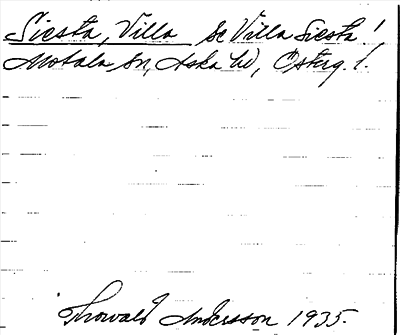 Siesta, Villa Se Villa Siesta!
Motala Sn, Aska hd, Österg. l.
Thorvald Andersson 1935.